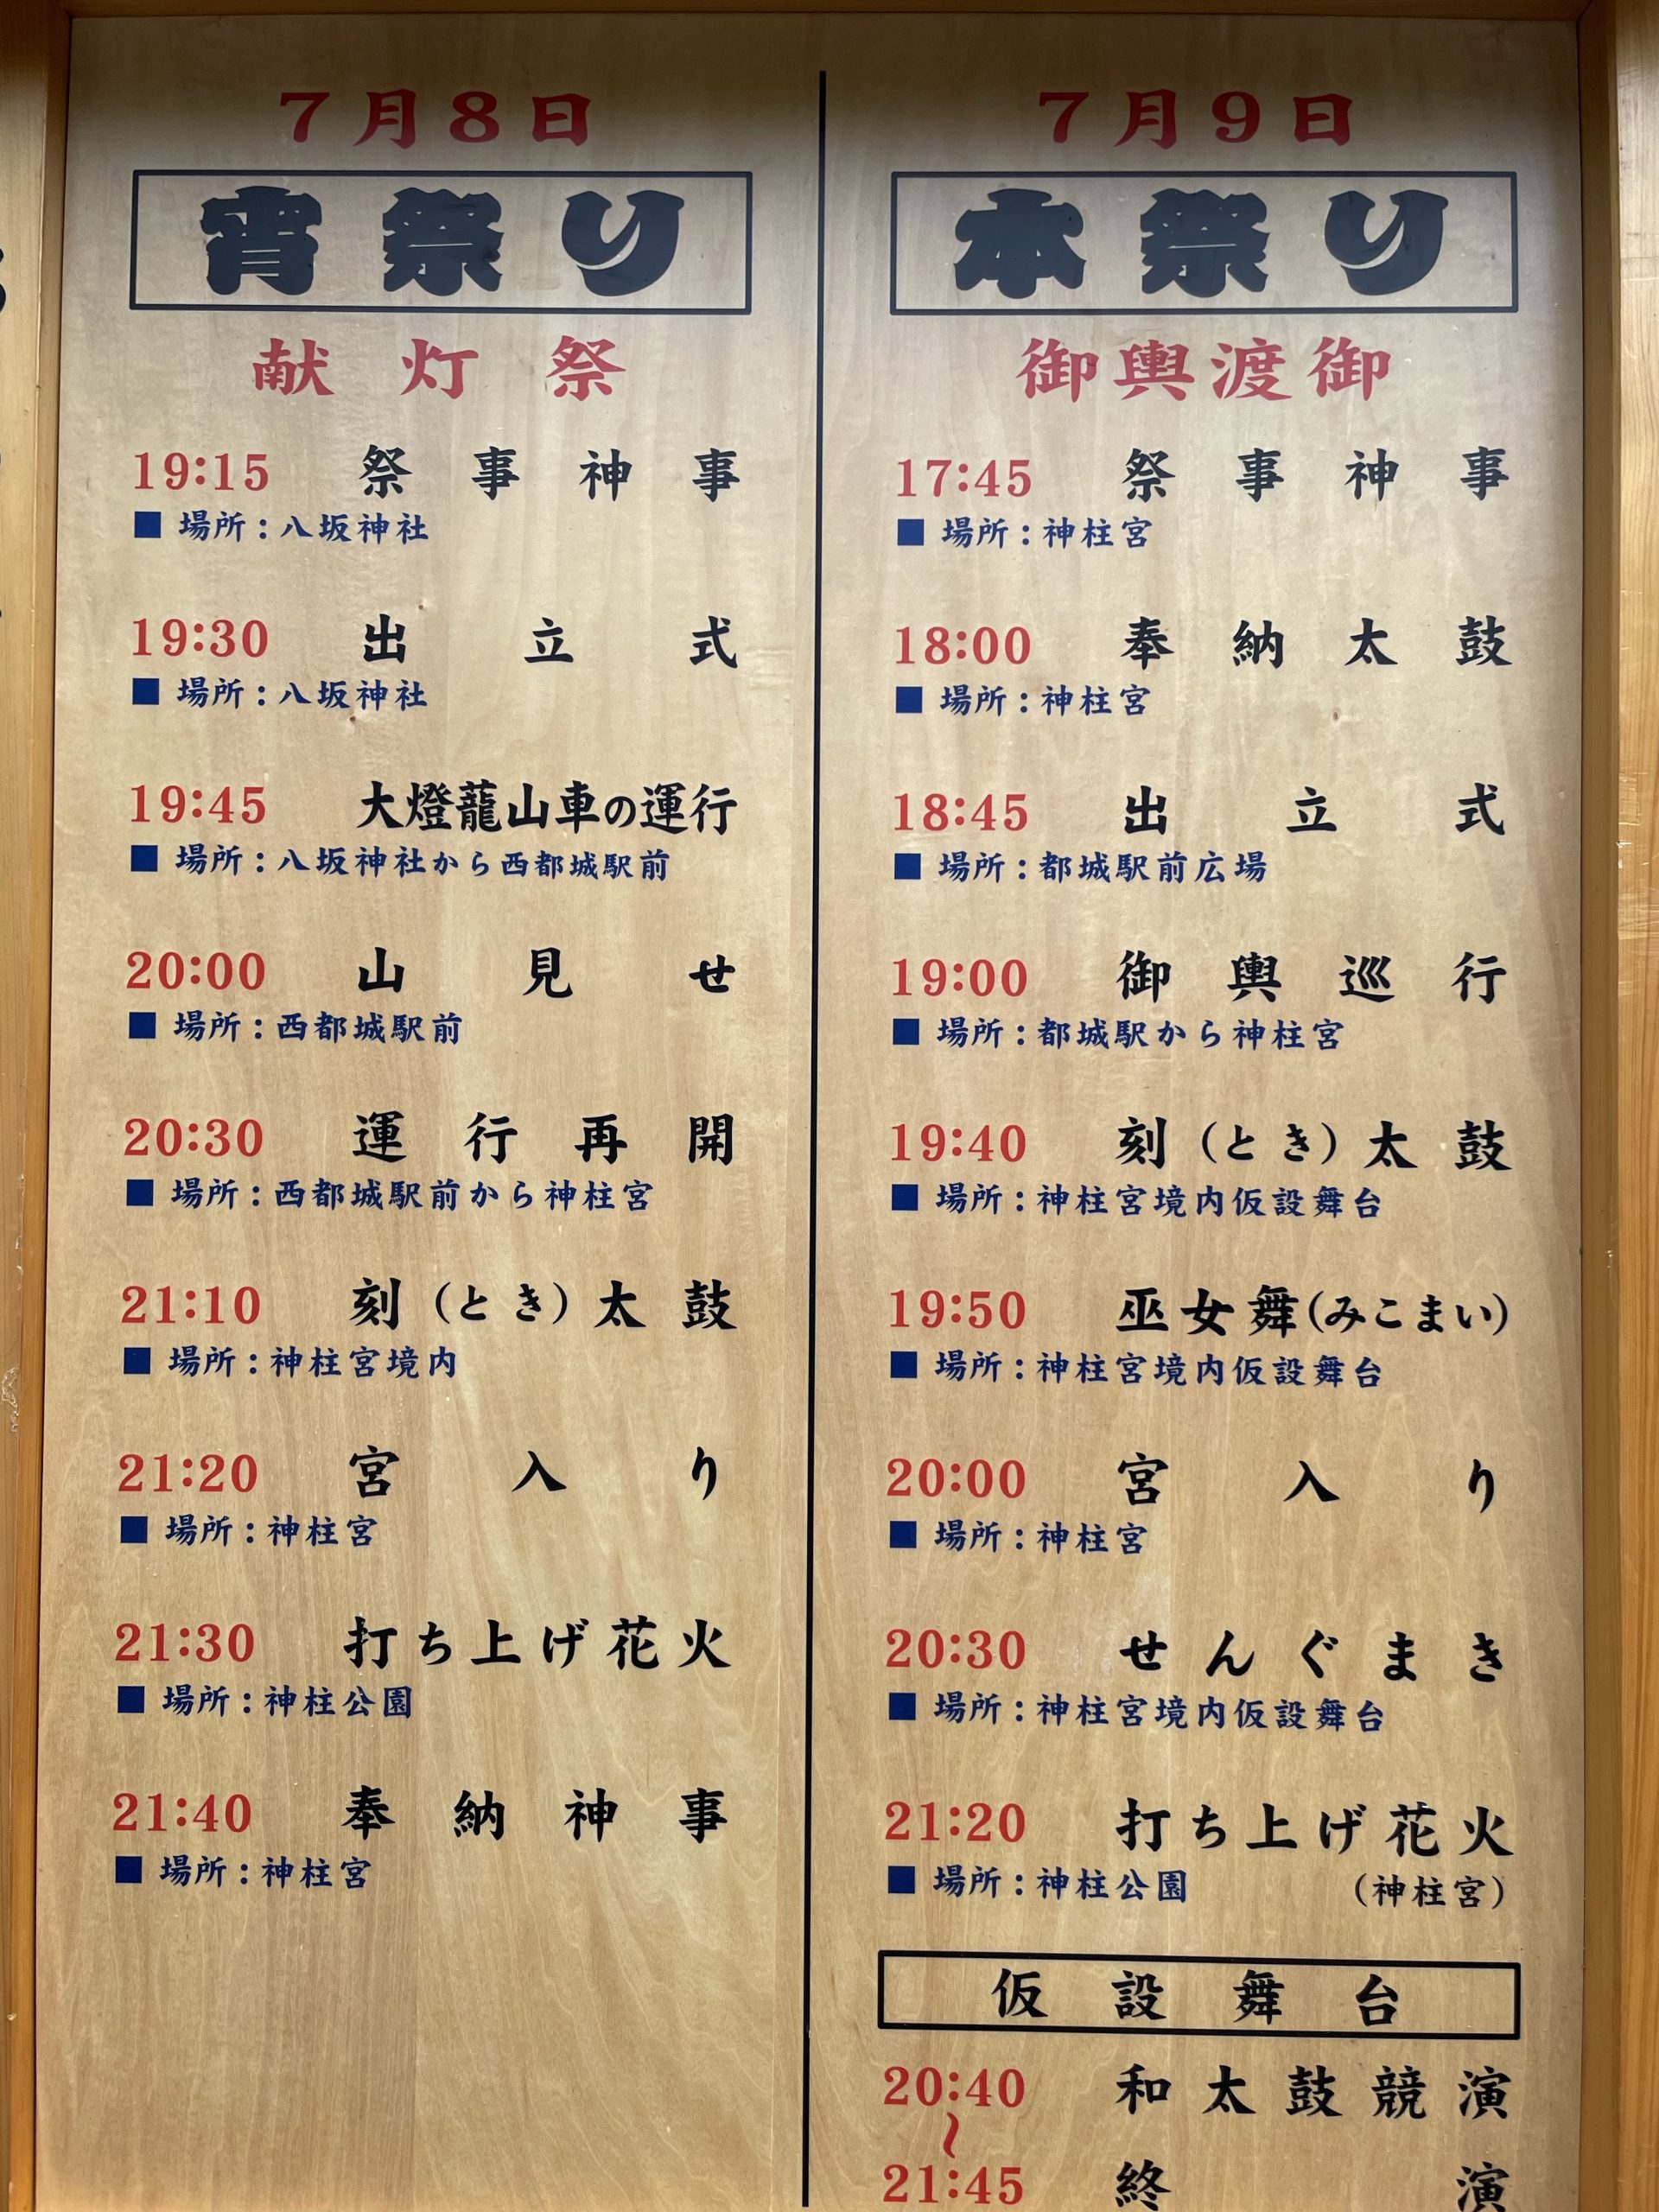 7月8日
宵祭り
献灯祭
19:15 祭事神事
■ 場所：八坂神社
19:30 出立式
■ 場所：八坂神社
19:45 大燈龍山車の運行
■ 場所：八坂神社から西都城駅前
20:00 山見せ
■ 場所：西都城駅前
20:30 運行再開
■ 場所：西都城駅前から神柱宮
21:10 刻（とき）太鼓
■ 場所：神柱宮境内
21:20 宮入り
■ 場所：神柱宮
21:30 打ち上げ花火
■ 場所：神柱公園
21:40 奉納神事
■ 場所：神柱宮
7月9日
本祭り
御輿渡御
17:45 祭事神事
■ 場所：神柱宮
18:00 奉納太鼓
■ 場所：神柱宮
18:45 出立式
■ 場所：都城駅前広場
19:00 御輿巡行
■ 場所：都城駅から神柱宮
19:40 刻（とき）太鼓
■ 場所：神柱宮境内仮設舞台
19:50 巫女舞(みこまい)
■ 場所：神柱宮境内仮設舞台
20:00 宮入り
■ 場所：神柱宮
20:30 せんぐまき
■ 場所：神柱宮境内仮設舞台
21:20 打ち上げ花火
■ 場所：神柱公園 （神柱宮）
仮設舞台
20:40 和太鼓競演
〜
21:45 終演